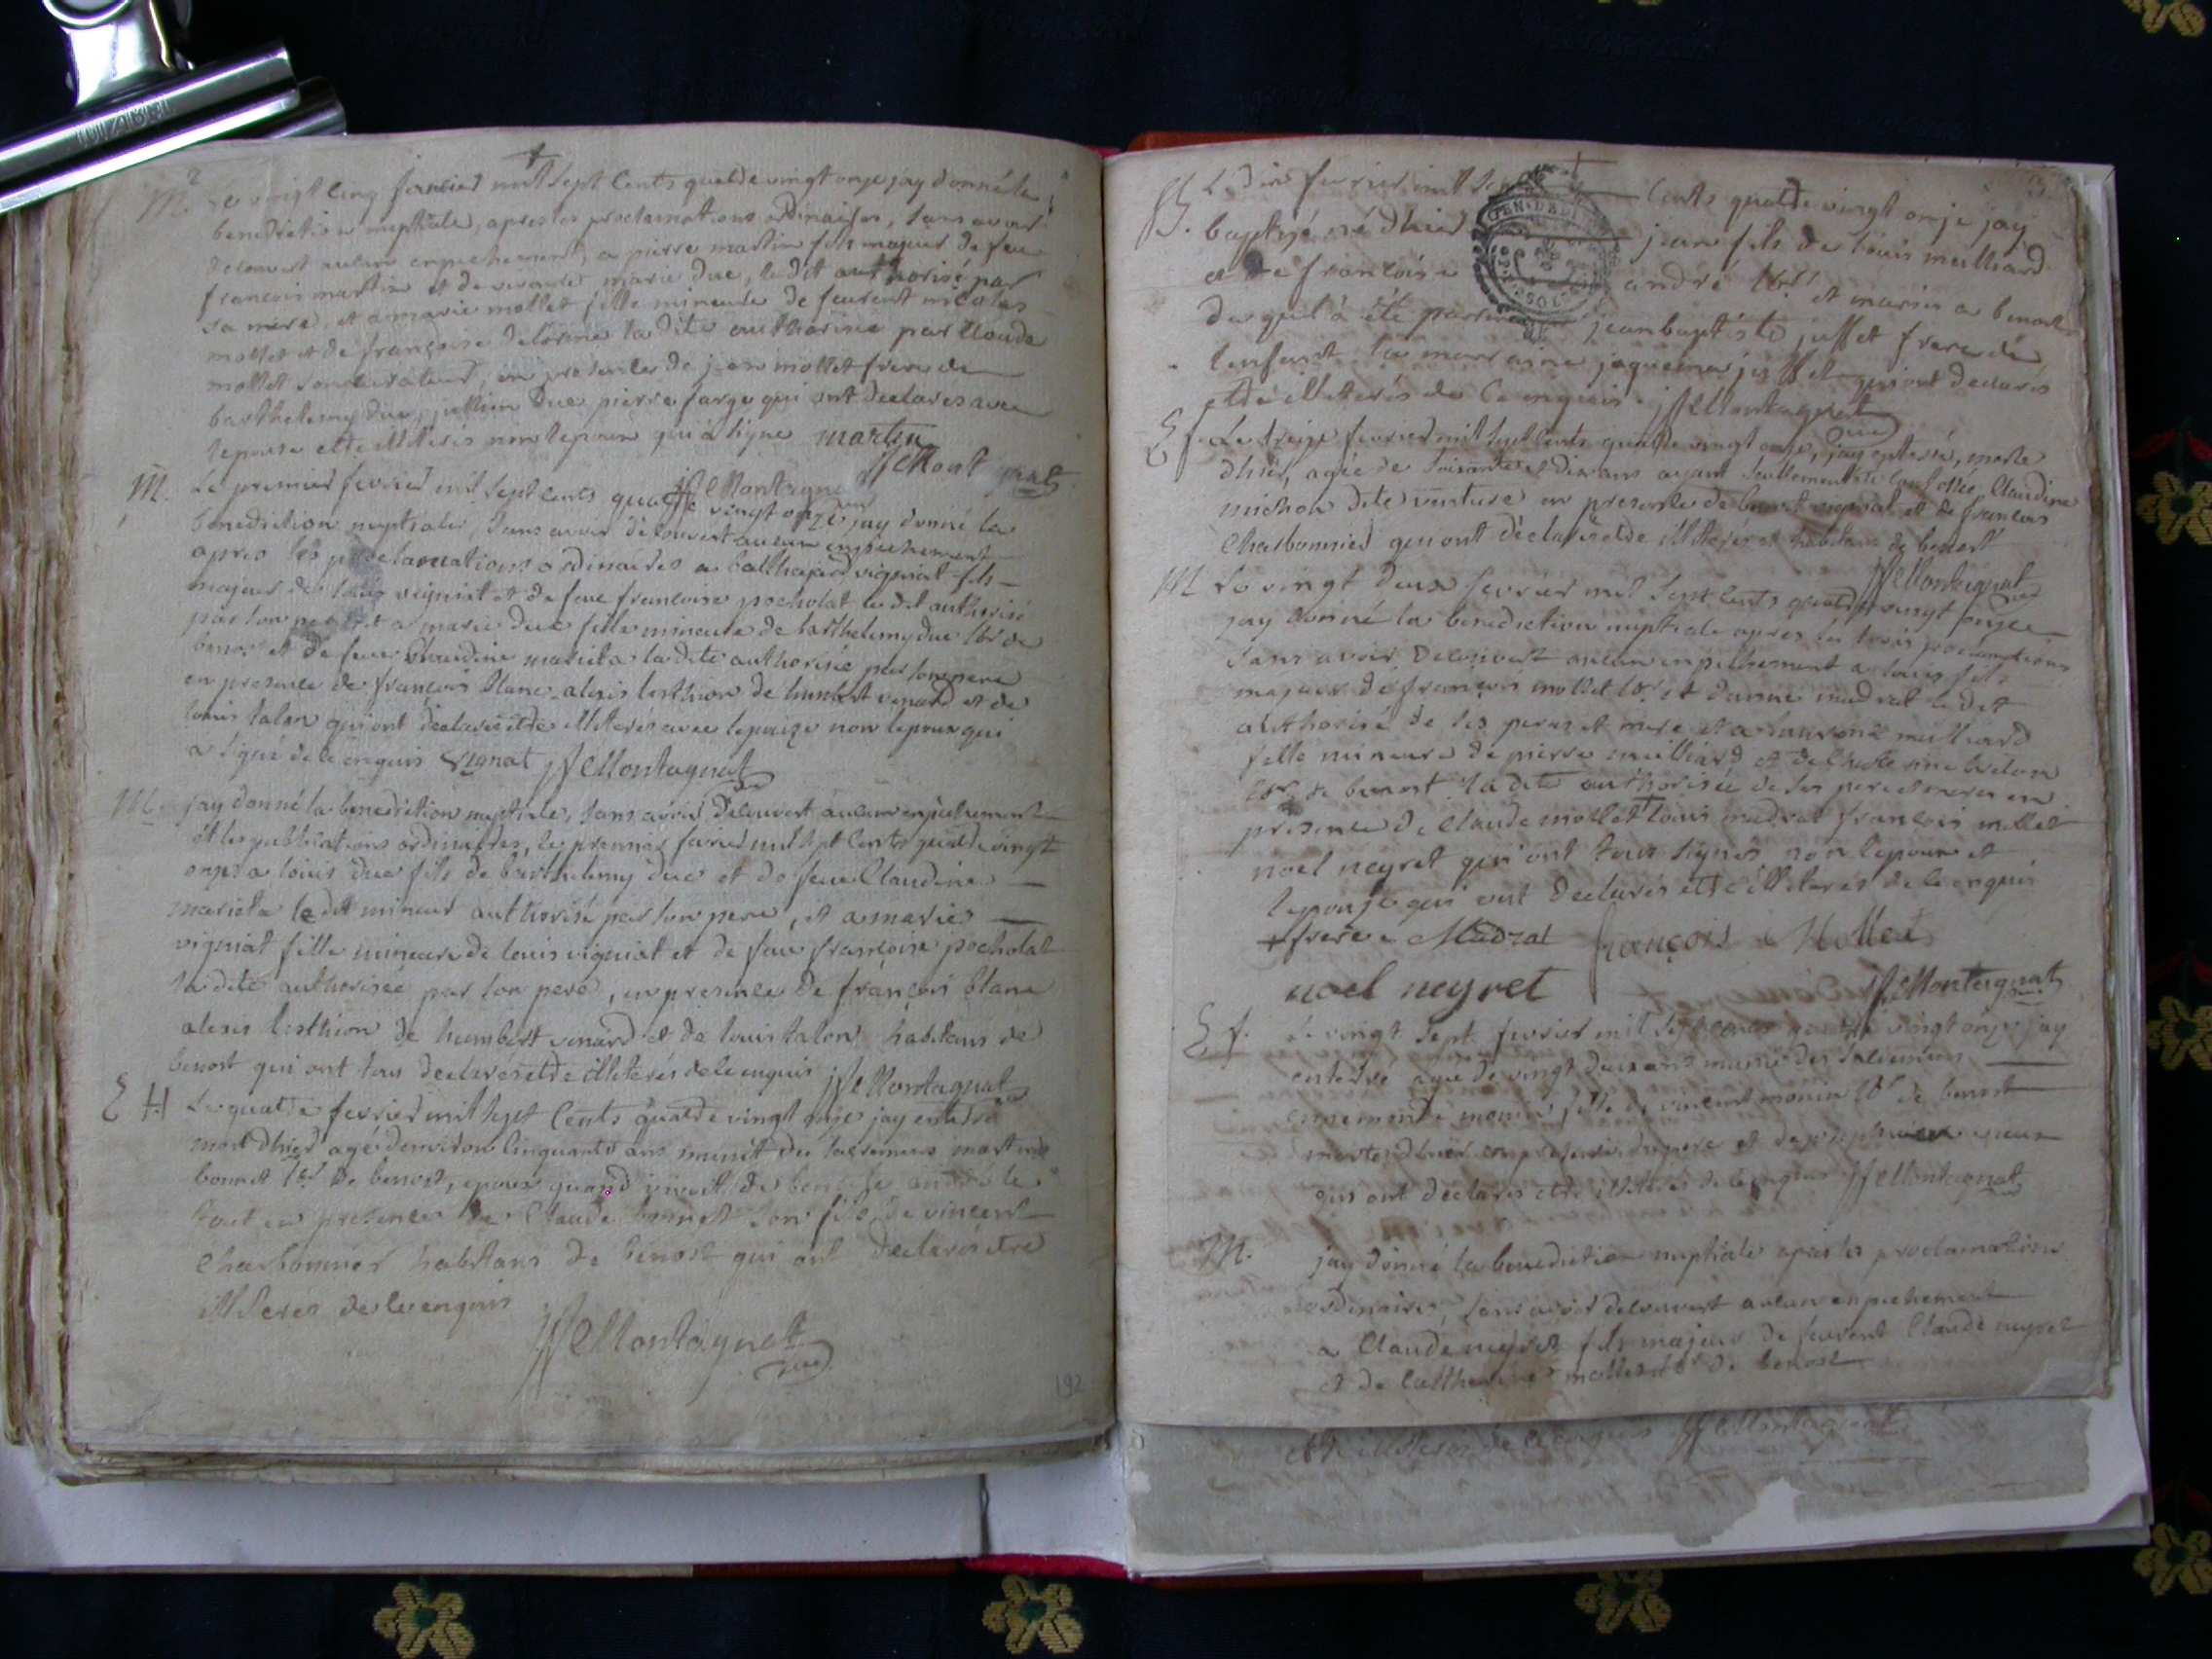 M. Le vingt cinq janvier mil sept cents quatre vingt onze jay donné la
benediction nuptiale, apres les proclamations ordinaires, sans avoir
decouvert aucun enpechement, a pierre martin fils majeur de feu
francois martin et de marie duc, le dit authorisé par
sa mere, et a marie mollet fille mineure de
mollet et de françoise delorme la dite authorisée par Claude
mollet son curateur, en presence de jean mollet frere de
barthelemy duc, duc pierre farge qui ont declarés avec
lepouse etre illiterés non lepoux qui a signé martin
M. Le premier fevrier mil sept cents quatre vingt onze jay donné la
benediction nuptiale, sans avoir decouvert aucun enpechement
apres les proclamations ordinaires a balthazard vigniat fils
majeur de louis vigniat et de feue francoise pocholat le dit authorisé
par son pere et a marie duc fille mineure de barthelemy duc lbr de
benost et de feue Claudine marieta la dite authorisée par son pere
en presence de françois blanc alexis de humbert venard et de
louis talon qui ont declarés etre illiterés avec lepouze non lepoux qui
a signé de ce enquis vignat JfeMontagnat
M. jay donné la benediction nuptiale, sans avoir decouvert aucun enpechement
et les publications ordinaires, le premier fevrier mil sept cents quatre vingt
onze a louis duc fils de barthelemy duc et de feue Claudine
marieta le dit mineur authorisé par son pere, et a marie
vigniat fille mineure de louis vigniat et de feue françoise pocholat
la dite authorisée par son pere, en presence de françois blanc
alexis de humbert venard et de louis talon habitans de
benost qui ont tous declarés etre illiterés de ce enquis JfeMontagnat
E H Le quatre fevrier mil sept cents quatre vingt onze jay enterré
mort dhier agé denviron cinquante ans munit des sacremens
bonnet lbr de benost, epoux quand vivoit de
tout en presence de Claude bonnet son fils de vincent
Charbonnier habitans de benost qui ont declarés etre
illiterés de ce enquis
JfeMontagnat
192
B. Le dix fevrier mil sept cents quatre vingt onze jay
baptizé né dhier jean fils de louis meilliard
et de françoise andré lbr et mariés a benost
duquel a été parrain jean baptiste juffet frere de
lenfant la marraine jaquema juffet qui ont declarés
etre illiterés de ce enquis JfeMontagnat
E f. Le treize fevrier mil sept cents quatre vingt onze, jay enterré, morte
dhier, agée de soixante et dix ans ayant seullement été confessée, Claudine
michon dite venture en presence de benoit vigniat et de françois
Charbonnier qui ont declarés etre illiterés et habitans de benost
JfeMontagnat
M Le vingt deux fevrier mil sept cents quatre vingt onze
jay donné la benediction nuptiale apres les trois proclamations
sans avoir decouvert aucun enpechement a louis fils
majeur de françois mollet lbr et danne mudrat le dit
authorisé de ses peres et mere et a meilliard
fille mineure de pierre meilliard et de
lbr de benost la dite authorisée de ses pere et mere en
presence de Claude mollet + louis mudrat françois mollet
noel neyret qui ont tous signés non lepoux et
lepouze qui ont declarés etre illiterés de ce enquis
+ frere Mudrat françois Mollet
noel neyret JfeMontagnat
E f. Le vingt sept fevrier mil sept cents quatre vingt onze jay
enterré agée de vingt deux ans munie des sacremens
monin fille de vincent monin lbr de benost
morte dhier en presence du pere et de
qui ont declarés etre illiterés de ce enquis JfeMontagnat
M. jay donné la benediction nuptiale apres les proclamations
ordinaires, sans avoir decouvert aucun enpechement
a Claude neyret fils majeur de Claude neyret
et de Catherine mollet lbr de benost
etre illiterés de ce enquis JfeMontagnat